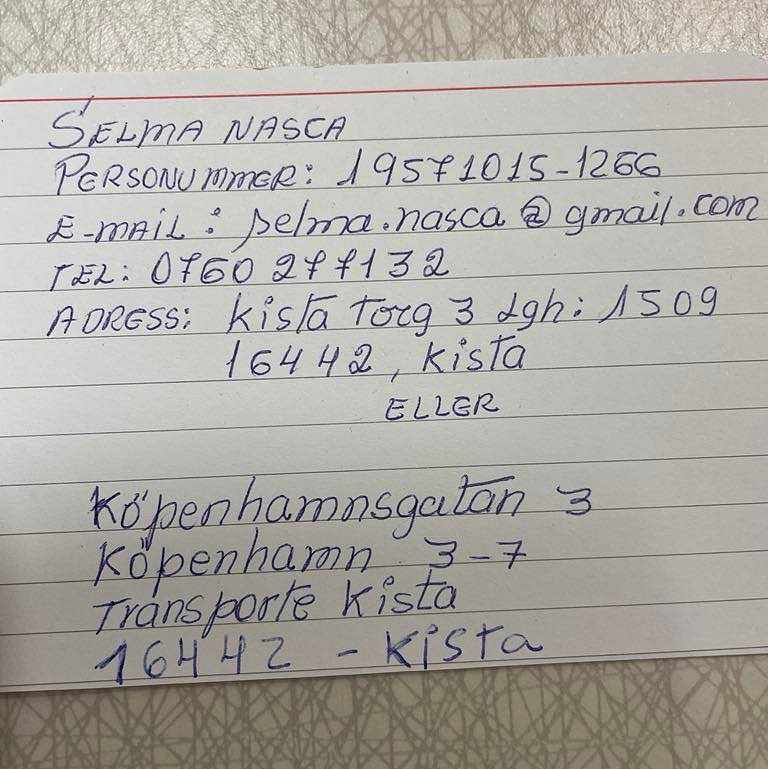 SELMA NASCA
PERSONUMMER: 19571015-1266
E-MAIL: selma.nasca@gmail.com
TEL: 0760 277132
ADRESS: Kista Torg 3 Lgh: 1509
16442, Kista
ELLER
Köpenhamnsgatan 3
Köpenhamn 3-7
Transporte Kista
16442 - Kista